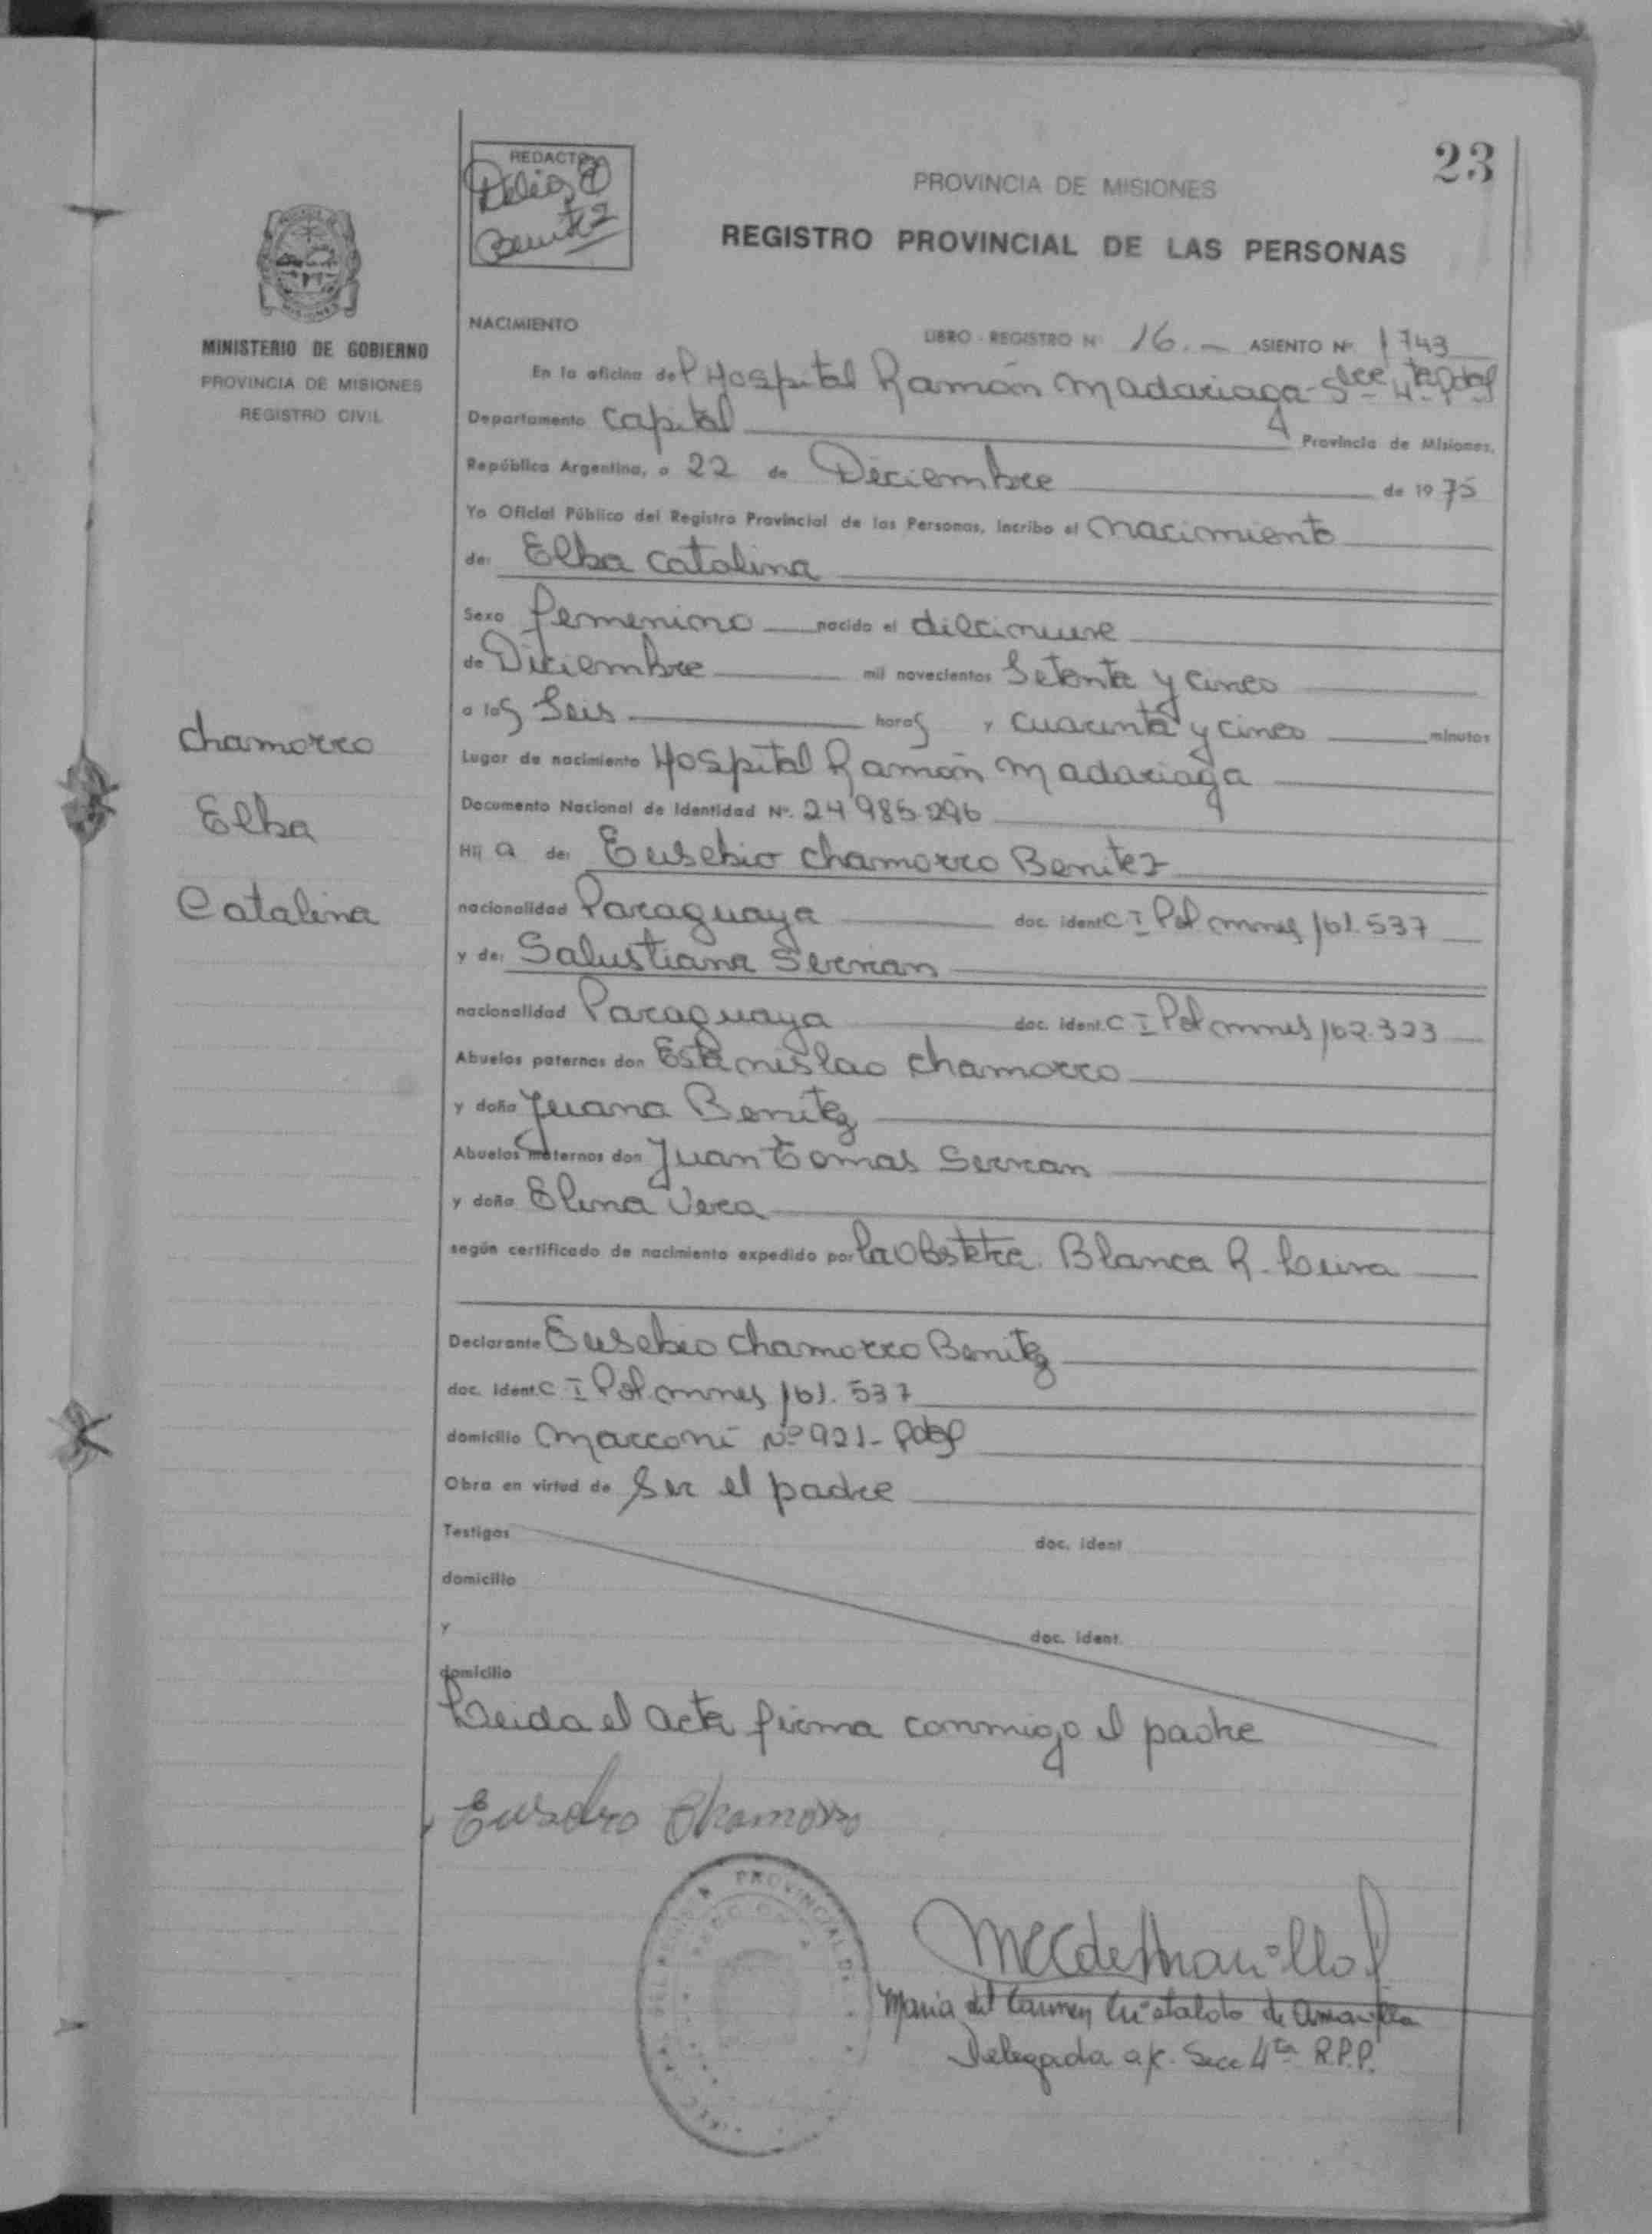 23
REDACTO
Delia
Benitez
PROVINCIA DE MISIONES
REGISTRO PROVINCIAL DE LAS PERSONAS
MINISTERIO DE GOBIERNO
PROVINCIA DE MISIONES
REGISTRO CIVIL
NACIMIENTO
LIBRO - REGISTRO Nº 16.- ASIENTO Nº 1743
En la oficina del Hospital Ramón Madariaga - Scc 4ta Pdas
Departamento Capital Provincia de Misiones,
República Argentina, a 22 de Diciembre de 1975
Yo Oficial Público del Registro Provincial de las Personas, incribo el nacimiento
de: Elba Catalina
Sexo femenino nacido el diecinueve
de Diciembre mil novecientos Setenta y cinco
a las Seis horas y cuarenta y cinco minutos
Lugar de nacimiento Hospital Ramón Madariaga
Documento Nacional de Identidad Nº. 24.985.296
Hij a de: Eusebio Chamorro Benitez
nacionalidad Paraguaya doc. ident. C I Pol mnes 161.537
y de: Salustiana Servian
nacionalidad Paraguaya doc. ident. C I Pol mnes 162.323
Abuelos paternos don Estanislao Chamorro
y doña Juana Benitez
Abuelos maternos don Juan Tomas Servian
y doña Elena Vera
según certificado de nacimiento expedido por la Obstetra. Blanca R. Leiva
Declarante Eusebio Chamorro Benitez
doc. ident. C I Pol. mnes 161.537
domicilio Marconi Nº 921 - Pdas
Obra en virtud de Ser el padre
Testigos doc. ident
domicilio
y doc. ident.
domicilio
Leida el acta firma conmigo el padre
Eusebio Chamorro
Maria del Carmen Cristaldo de Amarilla
Delegada a/c. Secc 4ta R.P.P.
Chamorro
Elba
Catalina